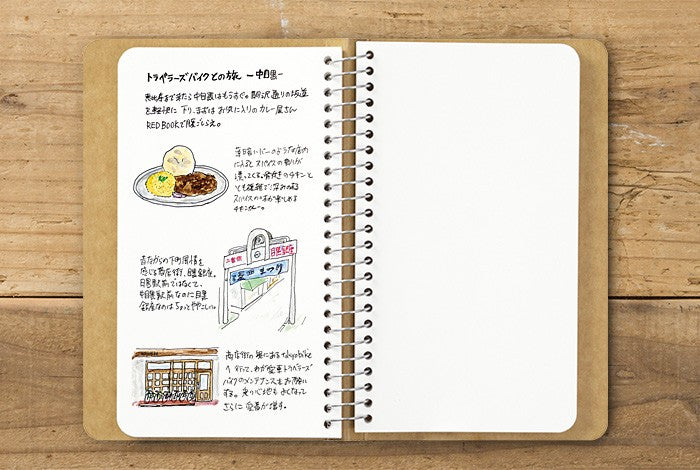 トラベラーズバイクとの旅 －中目黒－
恵比寿まで来たら中目黒はもうすぐ。駒沢通りの坂道
を軽快に下り、まずはお気に入りのカレー屋さん
RED BOOKで腹ごしらえ。
薄暗いバーのような店内
に入ると スパイスの香りが
漂ってくる。骨付きのチキンと
とても複雑で深みのある
スパイスの味が楽しめる
チキンカレー。
昔ながらの下町風情を
感じる商店街、目黒銀座。
目黒駅前ではなくて、
中目黒駅前なのに目黒
銀座なのはちょっとややこしい。
目黒銀座
まつり
商店街の奥にあるtokyobike
へ行って、わが愛車トラベラーズ
バイクのメンテナンスもお願い
する。乗り心地もよくなって
さらに愛着が増す。